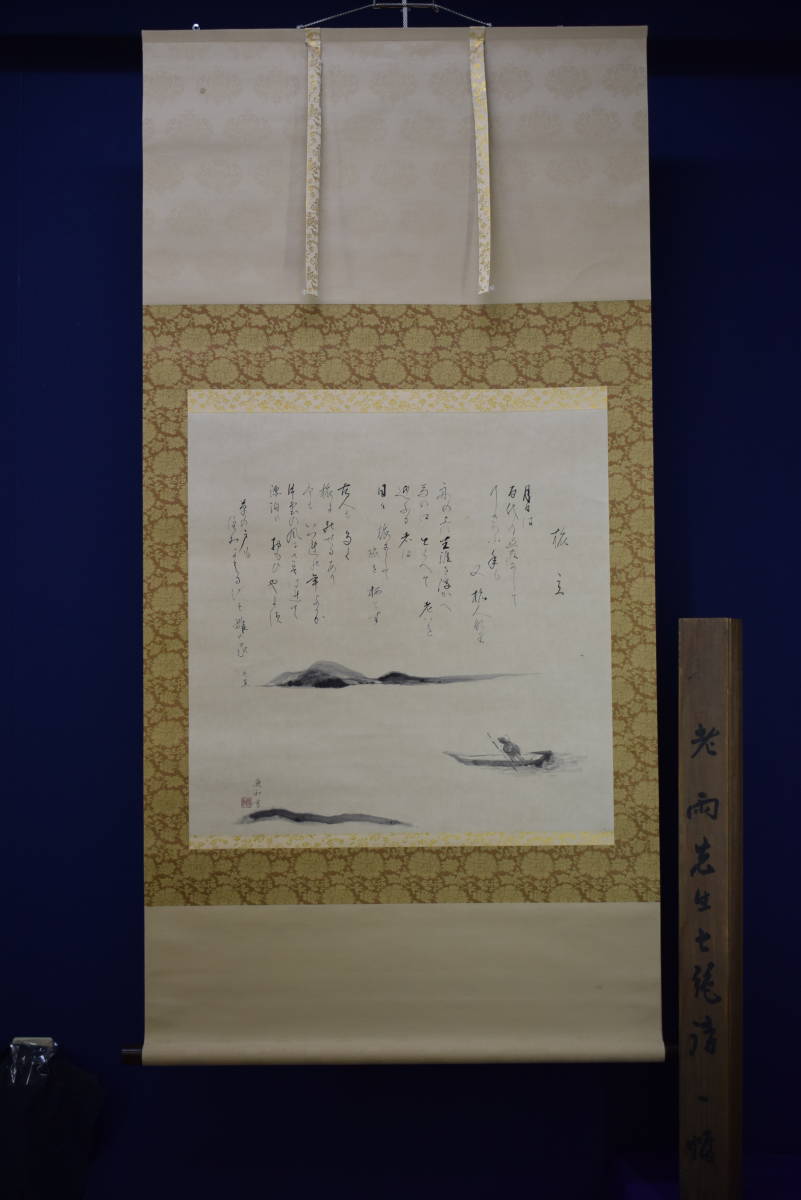 旅立
月日は
百代の過客にして
行かふ年も
又旅人也
舟の上に生涯を浮かへ
馬の口とらへて老いを
迎ふる者は
日々旅にして旅を栖とす
古人も多く
旅に死せるあり
予もいつれの年よりか
片雲の風にさそはれて
漂泊の思ひやます
草の戸も
住替る代そ雛の家
老雨先生七絶詩一幅